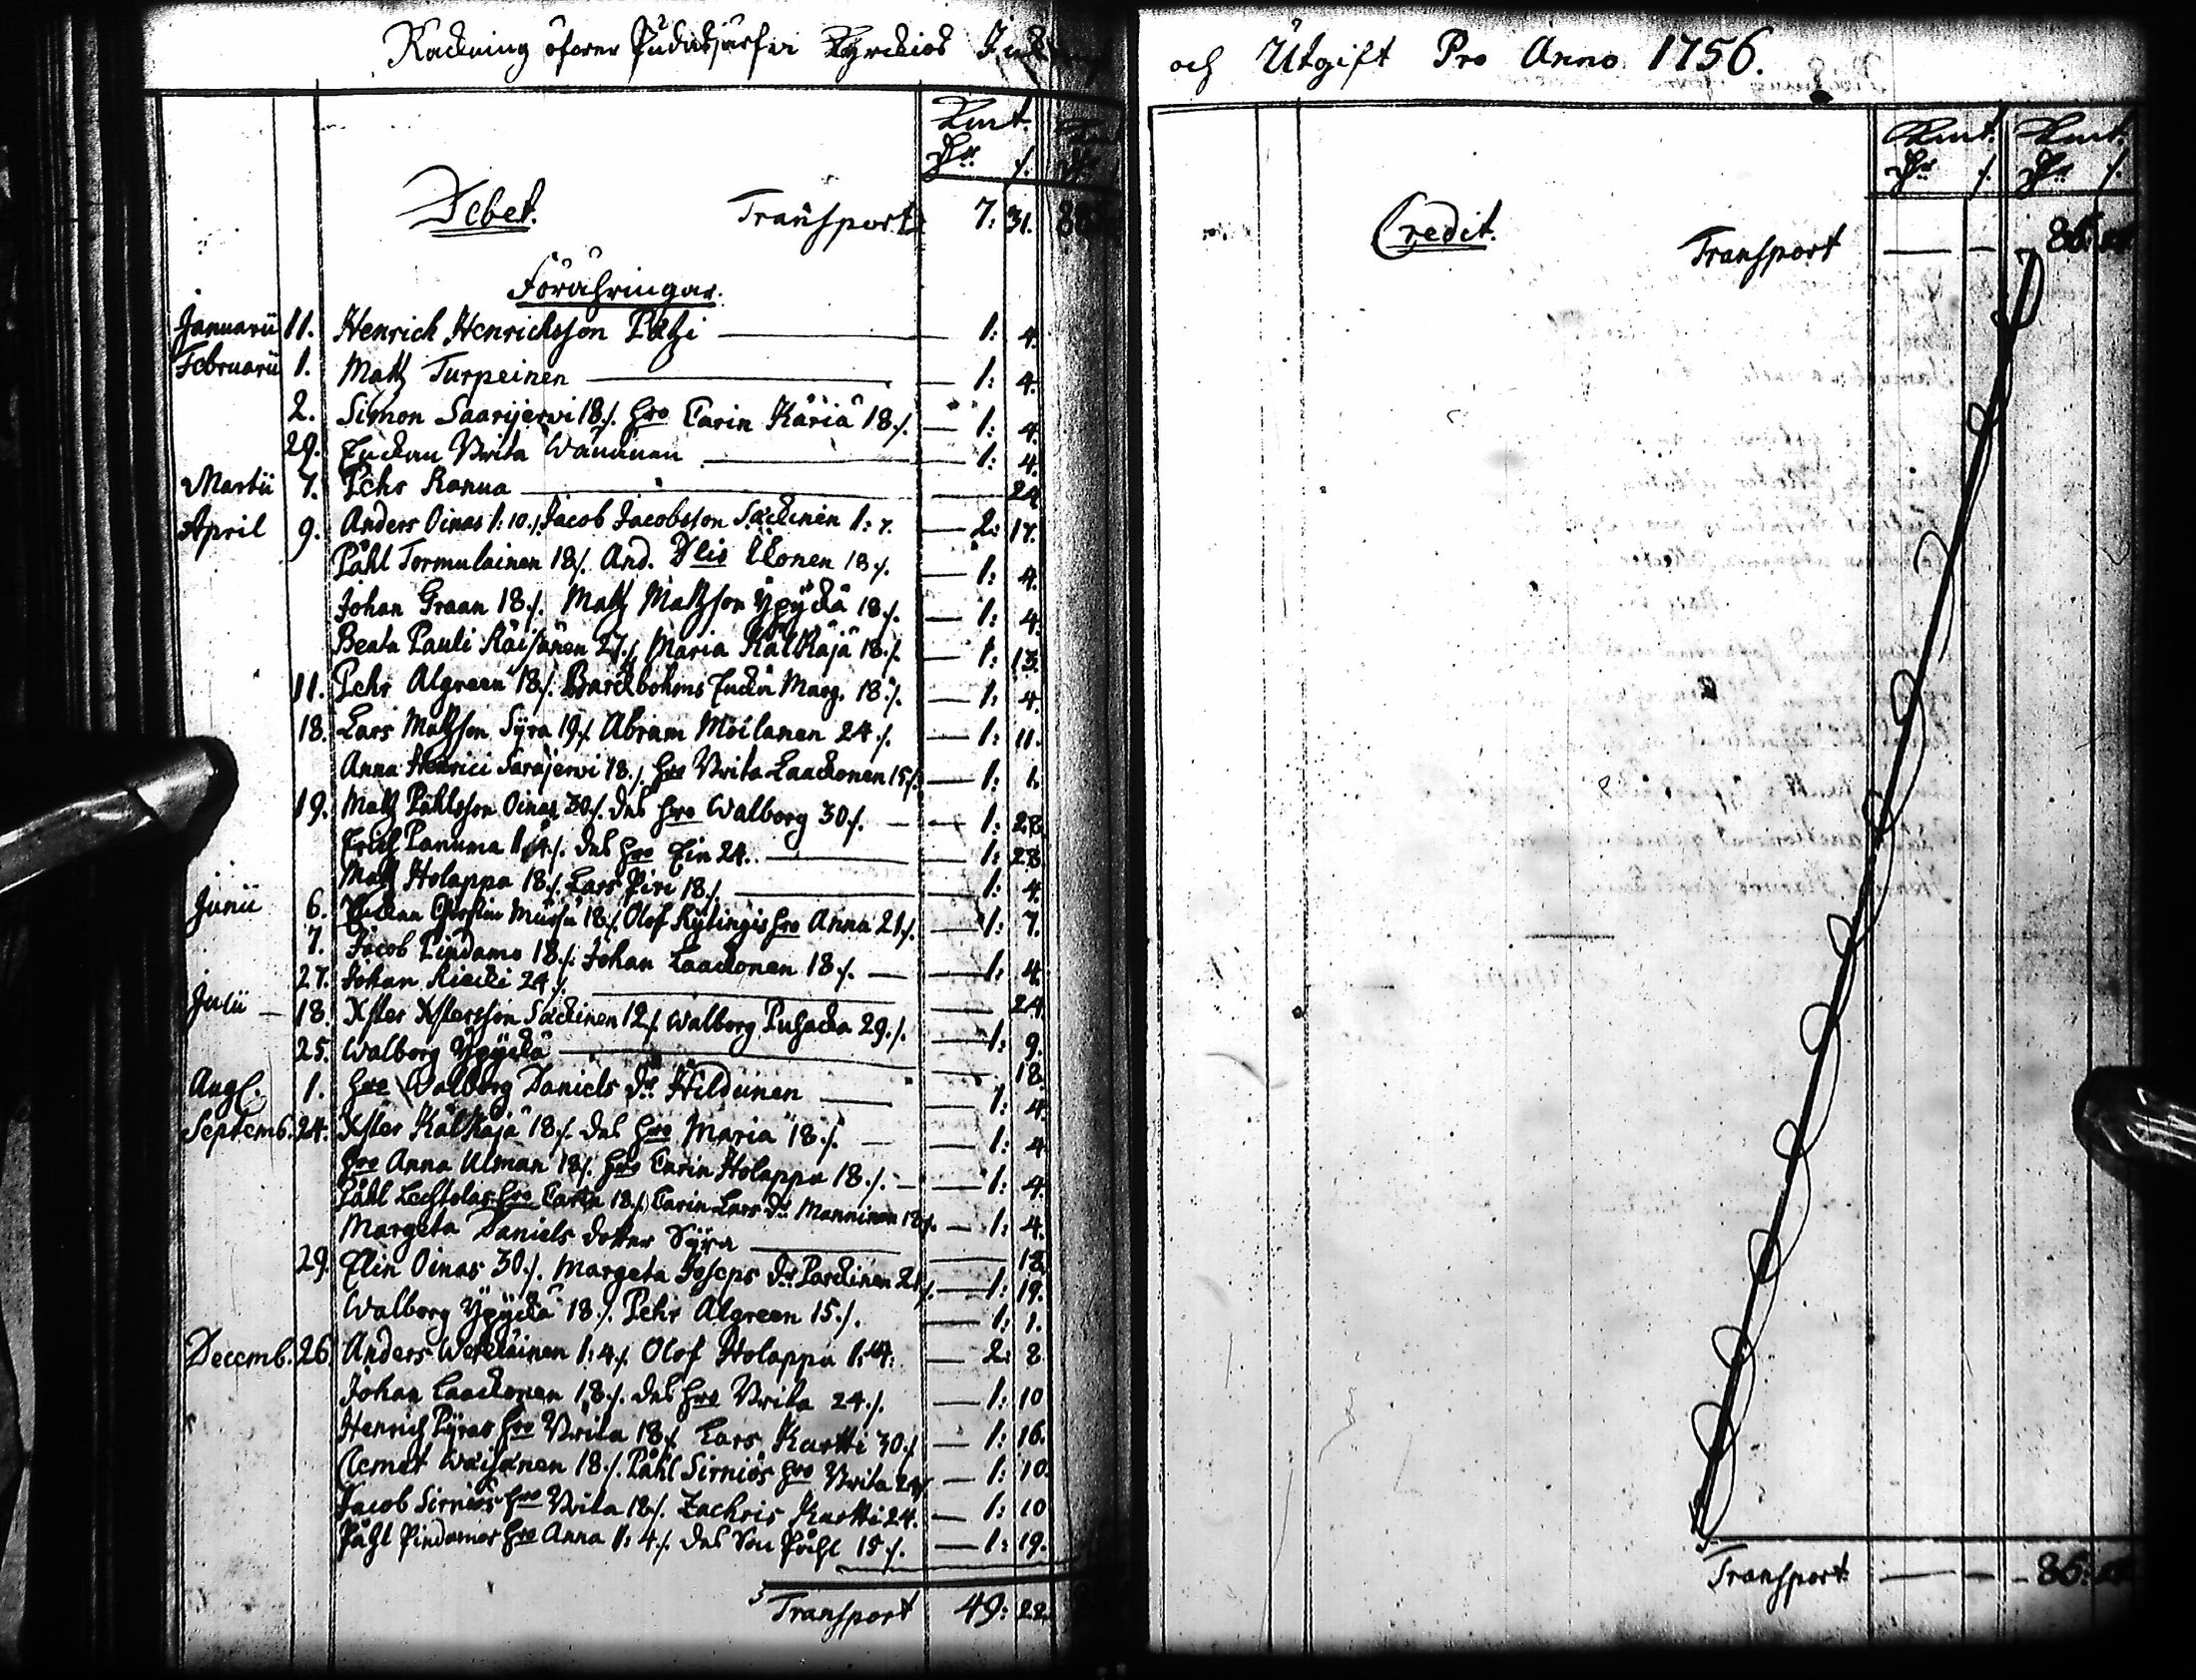 Räckning öfwer Pudasjärfwi Kyrckios
och Utgift Pro Anno 1756.
Kmt.
Dr ./.
Debet. Transport 7: 31.
Förähringar.
Januarii 11. Henrich Henrichsson Pätzi — 1: 4.
Februarii 1. Matz Turpeinen — 1: 4.
2. Simon Saarijerwi 18./. hro Carin Käriä 18./. — 1: 4.
29. Enckan Brita Wänänen — 1: 4.
Martii 7. Pehr Ranua — 24.
April 9. Anders Oinas 1: 10./. Jacob Jacobsson Säckinen 1: 7. — 2: 17.
Påhl Tormulainen 18./. And. Dlis Ukonen 18./. — 1: 4.
Johan Graan 18./. Matz Matzson Ypyckä 18./. — 1: 4.
Beata Pauli Räisänen 27./. Maria Kälkäjä 18./. — 1: 13.
11. Pehr Algreen 18./. Barckbohms Enckia Marg. 18./. — 1: 4.
18. Lars Matzson Syra 19./. Abram Moilanen 24./. — 1: 11.
Anna Henrici Sarajerwi 18./. hro Brita Laackonen 15./. — 1: 1.
19. Matz Påhlsson Oinas 30./. des hro Walborg 30./. — 1: 28.
Erich Panuma 1: 4./. des hro Elin 24. — 1: 28.
Matz Holappa 18./. Lars Piri 18./. — 1: 4.
Junii 6. Enckan 18./. Olof Kylingis hro Anna 21./. — 1: 7.
7. Jacob Pindamo 18./. Johan Laackonen 18./. — 1: 4.
27. Johan Riecki 24./. — 24.
Julii — 18. Xster Xstersson Säckinen 12./. Walborg Puhacka 29./. — 1: 9.
25. Walborg Ypyckä — 18.
Aug. 1. hro Walborg Daniels dr Hildunen — 1: 4.
Septemb. 24. Xster Kälkäjä 18./. des hro Maria 18./. — 1: 4
hro Anna Ulman 18./. hro Carin Holappa 18./. — 1: 4.
Påhl Lechtolas hro Carin 18./. Carin Lars dr Manninen 18./. — 1: 4.
Margeta Daniels dotter Syra — 18.
29. Elin Oinas 30./. Margeta Joseps dr Parckinen 21./. — 1: 19.
Walborg Ypyckä 18./. Pehr Algreen 15./. — 1: 1.
Decemb. 26. Anders Weteläinen 1: 4./. Olof Holappa 1: 4. — 2: 8
Johan Laackonen 18./. des hro Brita 24./. — 1: 10
Henrich Pyras hro Brita 18./. Lars Kurtti 30./. — 1: 16.
Clemet Wäisänen 18./. Påhl Sirniös hro Brita 24./. — 1: 10.
Jacob Sirniös hro Brita 18./. Zachris Kurtti 24. — 1: 10
Påhl Pindamos hro Anna 1: 4./. des Son Påhl 15./. — 1: 19.
Transport 49: 22.
Kmt. Kmt.
Dr ./. Dr ./.
Credit. Transport — — 86:
Transport — — 86: